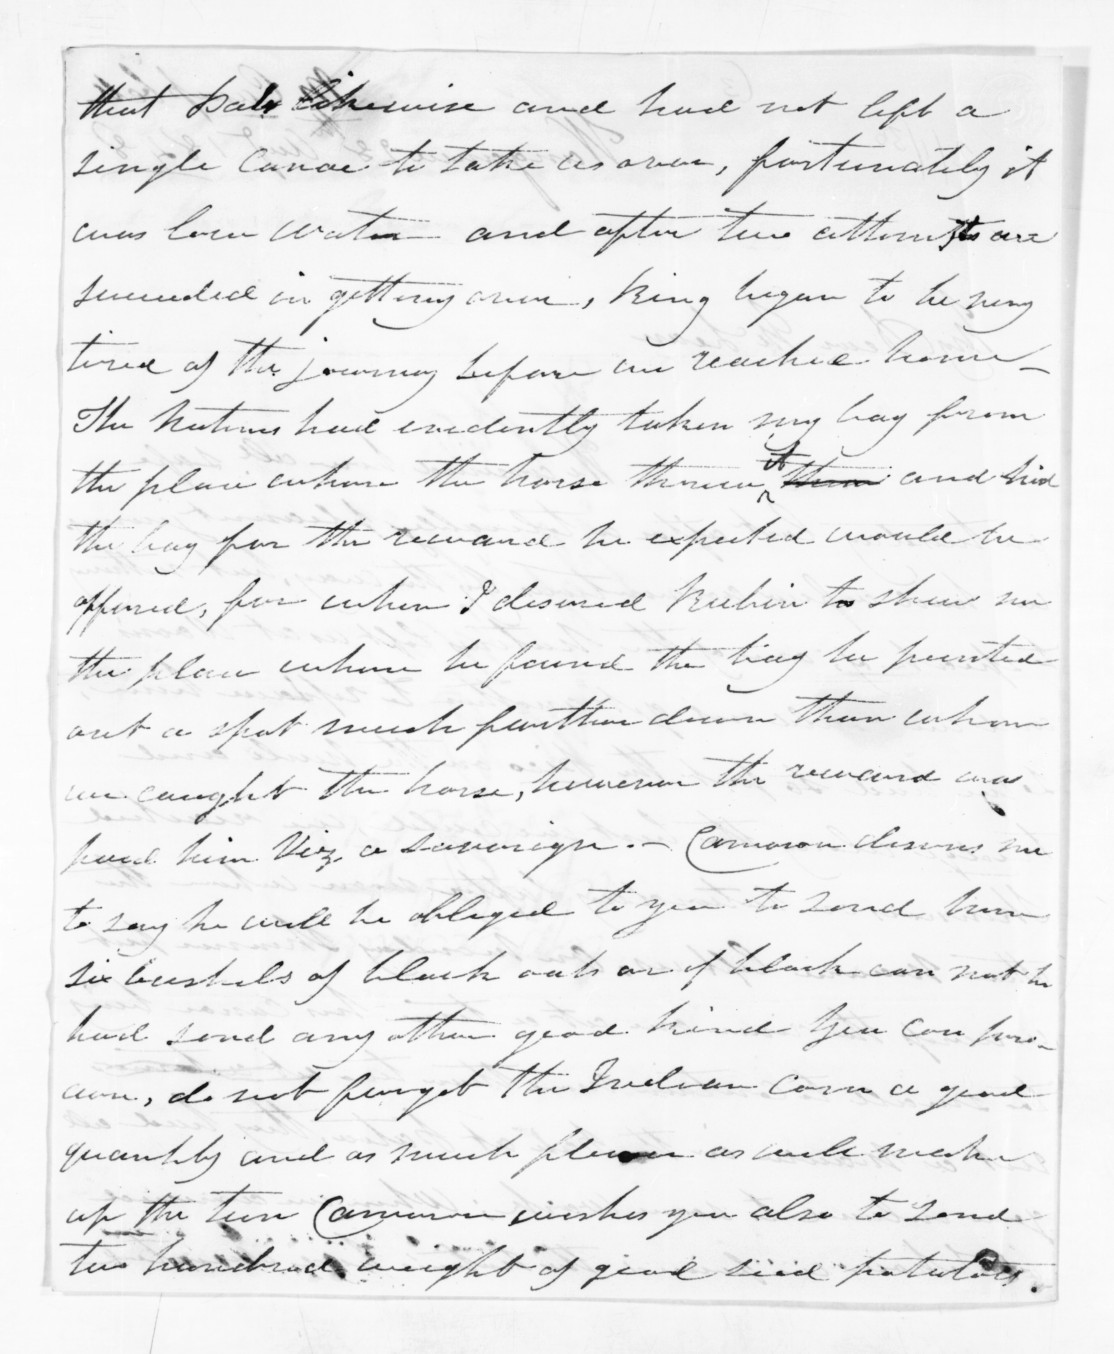 that Pah likewise and had not left a
single Canoe to take us over, fortunately it
was low water and after two attempts we
succeeded in getting over, King began to be very
tired of the journey before we reached home_
The Natives had evidently taken my bag from
the place where the horse threw it them and hid
the bag for the reward he expected would be
offered, for when I desired Rubin to shew me
the place where he found the bag he pointed
out a spot much further down than where
we caught the horse, however the reward was
paid him Viz. a sovereign. — Cameron desires me
to say he will be obliged to you to send him
six bushels of black oats or if black can not be
had send any other good kind you can pro-
cure, do not forget the Indian Corn a good
quantity and as much flour as will make
up the ton Cameron wishes you also to send
two hundred weight of good seed potatoes.